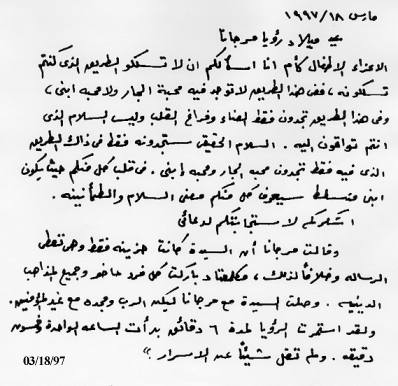 مارس ١٨/ ١٩٩٧
عيد ميلاد رؤيا مرجانا
الاعزاء الاطفال كأم انا اسألكم ان لا تسلكو الطريق الذى كنتم
تسلكونه، ففى هذا الطريق لا توجد فيه محبة الجار ولا محبة ابنى،
وفى هذا الطريق تجدون فقط العناء وفراغ القلب وليس السلام الذى
انتم تواقون اليه. السلام الحقيقى ستجدونه فقط فى ذاك الطريق
الذى فيه فقط تجدون محبه الجار ومحبه إبنى. فى قلب كل منكم حيث يكون
ابنى متسلط سيعرف كل منكم معنى السلام والطمأنينه.
اشكركم لاستجابتكم لدعائى
وقالت مرجانا أن السيدة كانت حزينه فقط وهى تعطى
الرساله وخلافاً لذلك، فكالمعتاد باركت كل فرد حاضر وجميع المذاهب
الدينيه. وصلت السيدة مع مرجانا ليكه الرب ومجده مع غير المؤمنين.
ولقد استمرت الرؤيا لمدة ٦ دقائق بدأت الساعه الواحدة وخمسون
دقيقه. ولم تقل شيئاً عن الاسرار؟"
03/18/97